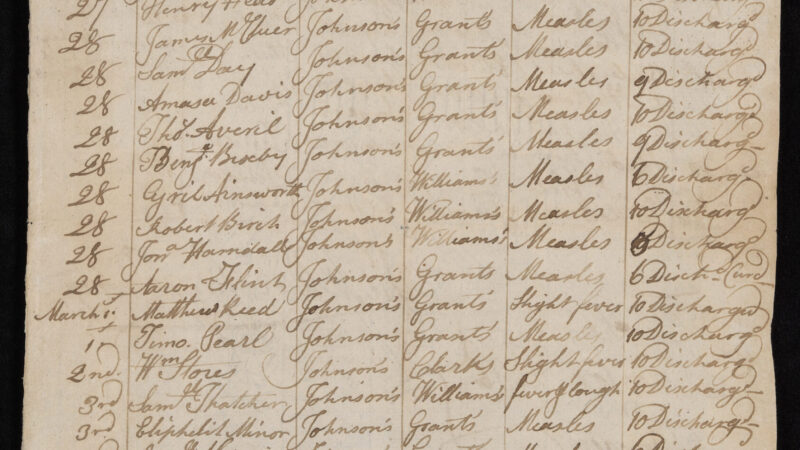 27 Henry Johnson's Grants Measles 10 Discharg.d
28 James Johnson's Grants Measles 10 Discharg.d
28 Sam.l Day Johnson's Grants Measles 9 Discharg.d
28 Amasa Davis Johnson's Grants Measles 10 Discharg.d
28 Tho.s Averil Johnson's Grants Measles 9 Discharg.d
28 Benj.a Bixby Johnson's Grants Measles 6 Discharg.d
28 Cyril Ainsworth Johnson's Williams's Measles 10 Discharg.d
28 Robert Birch Johnson's Williams's Measles Discharg.d
28 Jon.a Harndall Johnson's Williams's Measles 6 Disch.
28 Aaron Flint Johnson's Grants Measles
March 1st Matthew Reed Johnson's Grants Slight fever 10 Discharged
1st Timo. Pearl Johnson's Grants Measles 10 Discharg.d
2nd. Wm Stores Johnson's Clarks Slight fever 10 Discharg.d
3rd Sam.l Thatcher Johnson's Williams's fever & Cough 10 Discharg.d
3rd. Eliphelit Minor Johnson's Grants Measles 10 Discharg.d